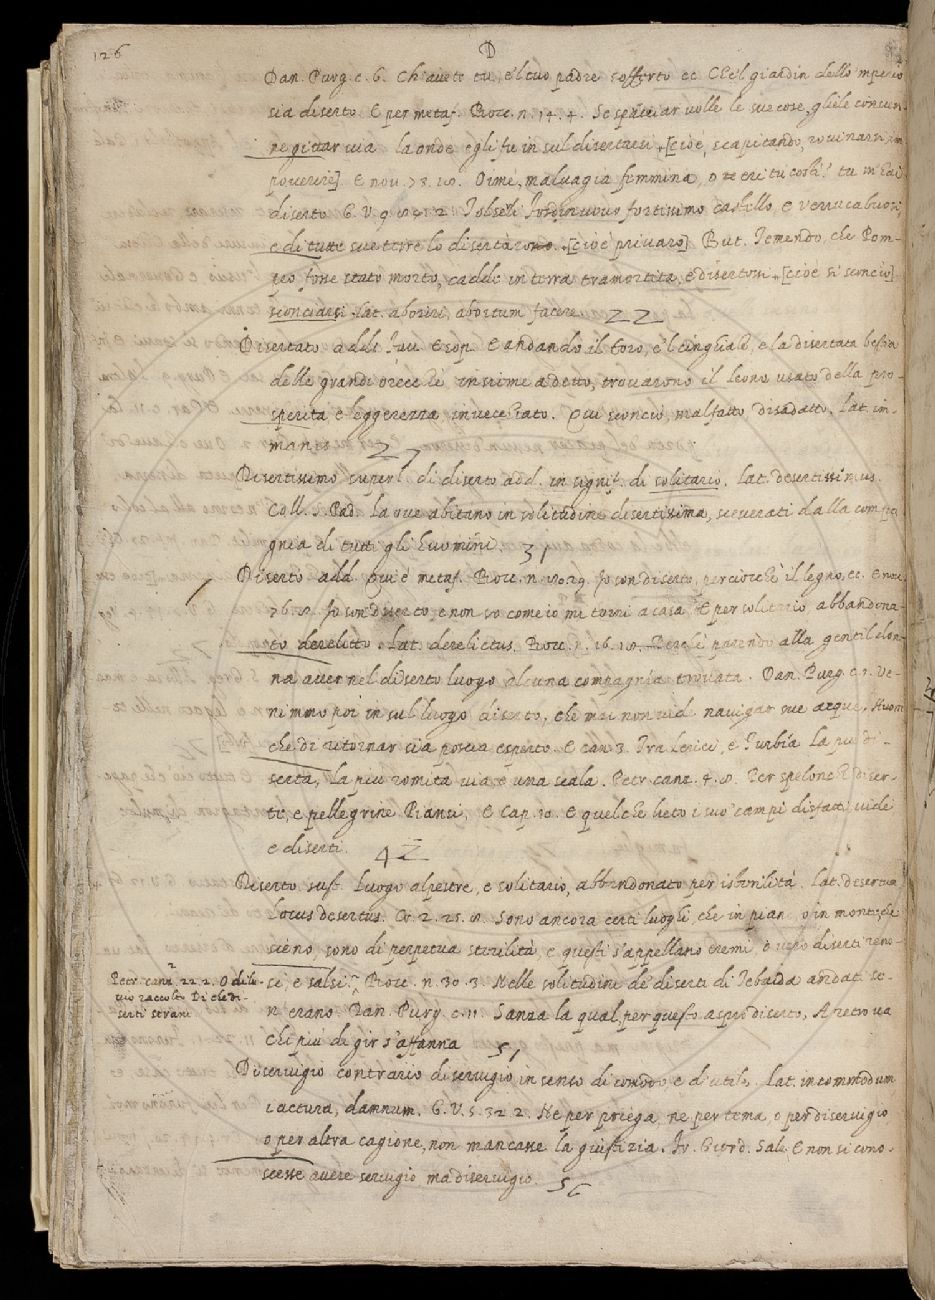 126
D
Dan. Purg. c. 6. Ch'avete tu, e'l tuo padre sofferto ec. Che'l giardin dello mperio
sia diserto. E per metaf. Bocc. n. 14. 4. Se spacciar volle le sue cose, gliele convenne
gittar via la onde egli fu in sul disertarsi, [cioè, scapitando, rovinarsi
poverire] E nov. 73. 20. Oimè, malvagia femmina, o tu m'hai
diserto G. V. 9. fortissimo castello, e
e di tutte sue terre lo disertarono. [cioè privaro] But. Temendo, che Pom-
peo fosse stato morto, cadde in terra tramortita, e disertossi, [cioè si sconciò]
sconciarsi. Lat. aboriri, abortum facere. 22
Disertato add. Fav. Esop. E andando il toro, e'l cinghiale, e la disertata bestia
delle grandi orecchie, insieme a detto, trovarono il leone usato della pro-
sperità e leggerezza invecchiato. Qui sconcio, malfatto, disadatto. Lat. im-
manis. 27
Disertissimo superl. di diserto add. in signif. di solitario. Lat. desertissimus.
Coll. S. Pad. La ove abitano in solitudine disertissima, sceverati dalla compa
gnia di tutti gli huomini. 31
Diserto add. Qui è metaf. Bocc. n. Io son diserto, perciocchè il legno, ec. E nov.
76. Io son diserto, e non so come io mi torni a casa. E per solitario abbandona-
to derelitto. Lat. derelictus. Bocc. n. 16. 10. Perchè parendo alla gentil don-
na aver nel diserto luogo alcuna compagnia trovata. Dan. Purg. c. 1. Ve-
nimmo poi in sul luogo diserto, che mai non vide navigar sue acque, Huom
che di ritornar sia poscia esperto. E can. 3. Tra Lerici, e Turbía La più di-
serta, la più romita via è una scala. Petr. canz. 4. 8. Per spelonche diser-
te, e pellegrine Pianti, E cap. 10. E quel che lieto i suo' campi disfatti vide
e diserti. 42
Diserto sust. Luogo alpestre, e solitario, abbandonato per isterilità. Lat. desertum,
Locus desertus. Cr. 2. 25. 8. Sono ancora certi luoghi che in piano, o in monti, che
sieno, sono di perpetua sterilità, e questi s'appellano eremi, o vero diserti reno-
si, e salsi. Bocc. n. 30. 3. Nelle solitudini de' diserti di Tebaida andati se-
n'erano. Dan. Purg. c. 11. Sanza la qual, per questo aspro diserto, A retro va
chi più di gir s'affanna 51
Petr. canz. 22. 2. O dilu-
vio raccolto Di che di-
serti strani
Diservigio contrario di servigio in senso di comodo e d'utile. Lat. incommodum
iactura, damnum. G. V. 5. 32. 2. Ne per priego, ne per tema, o per diservigio
o per altra cagione, non mancasse la giustizia. Fr. Giord. Salv. E non si cono-
scesse avere servigio, ma diservigio. 56